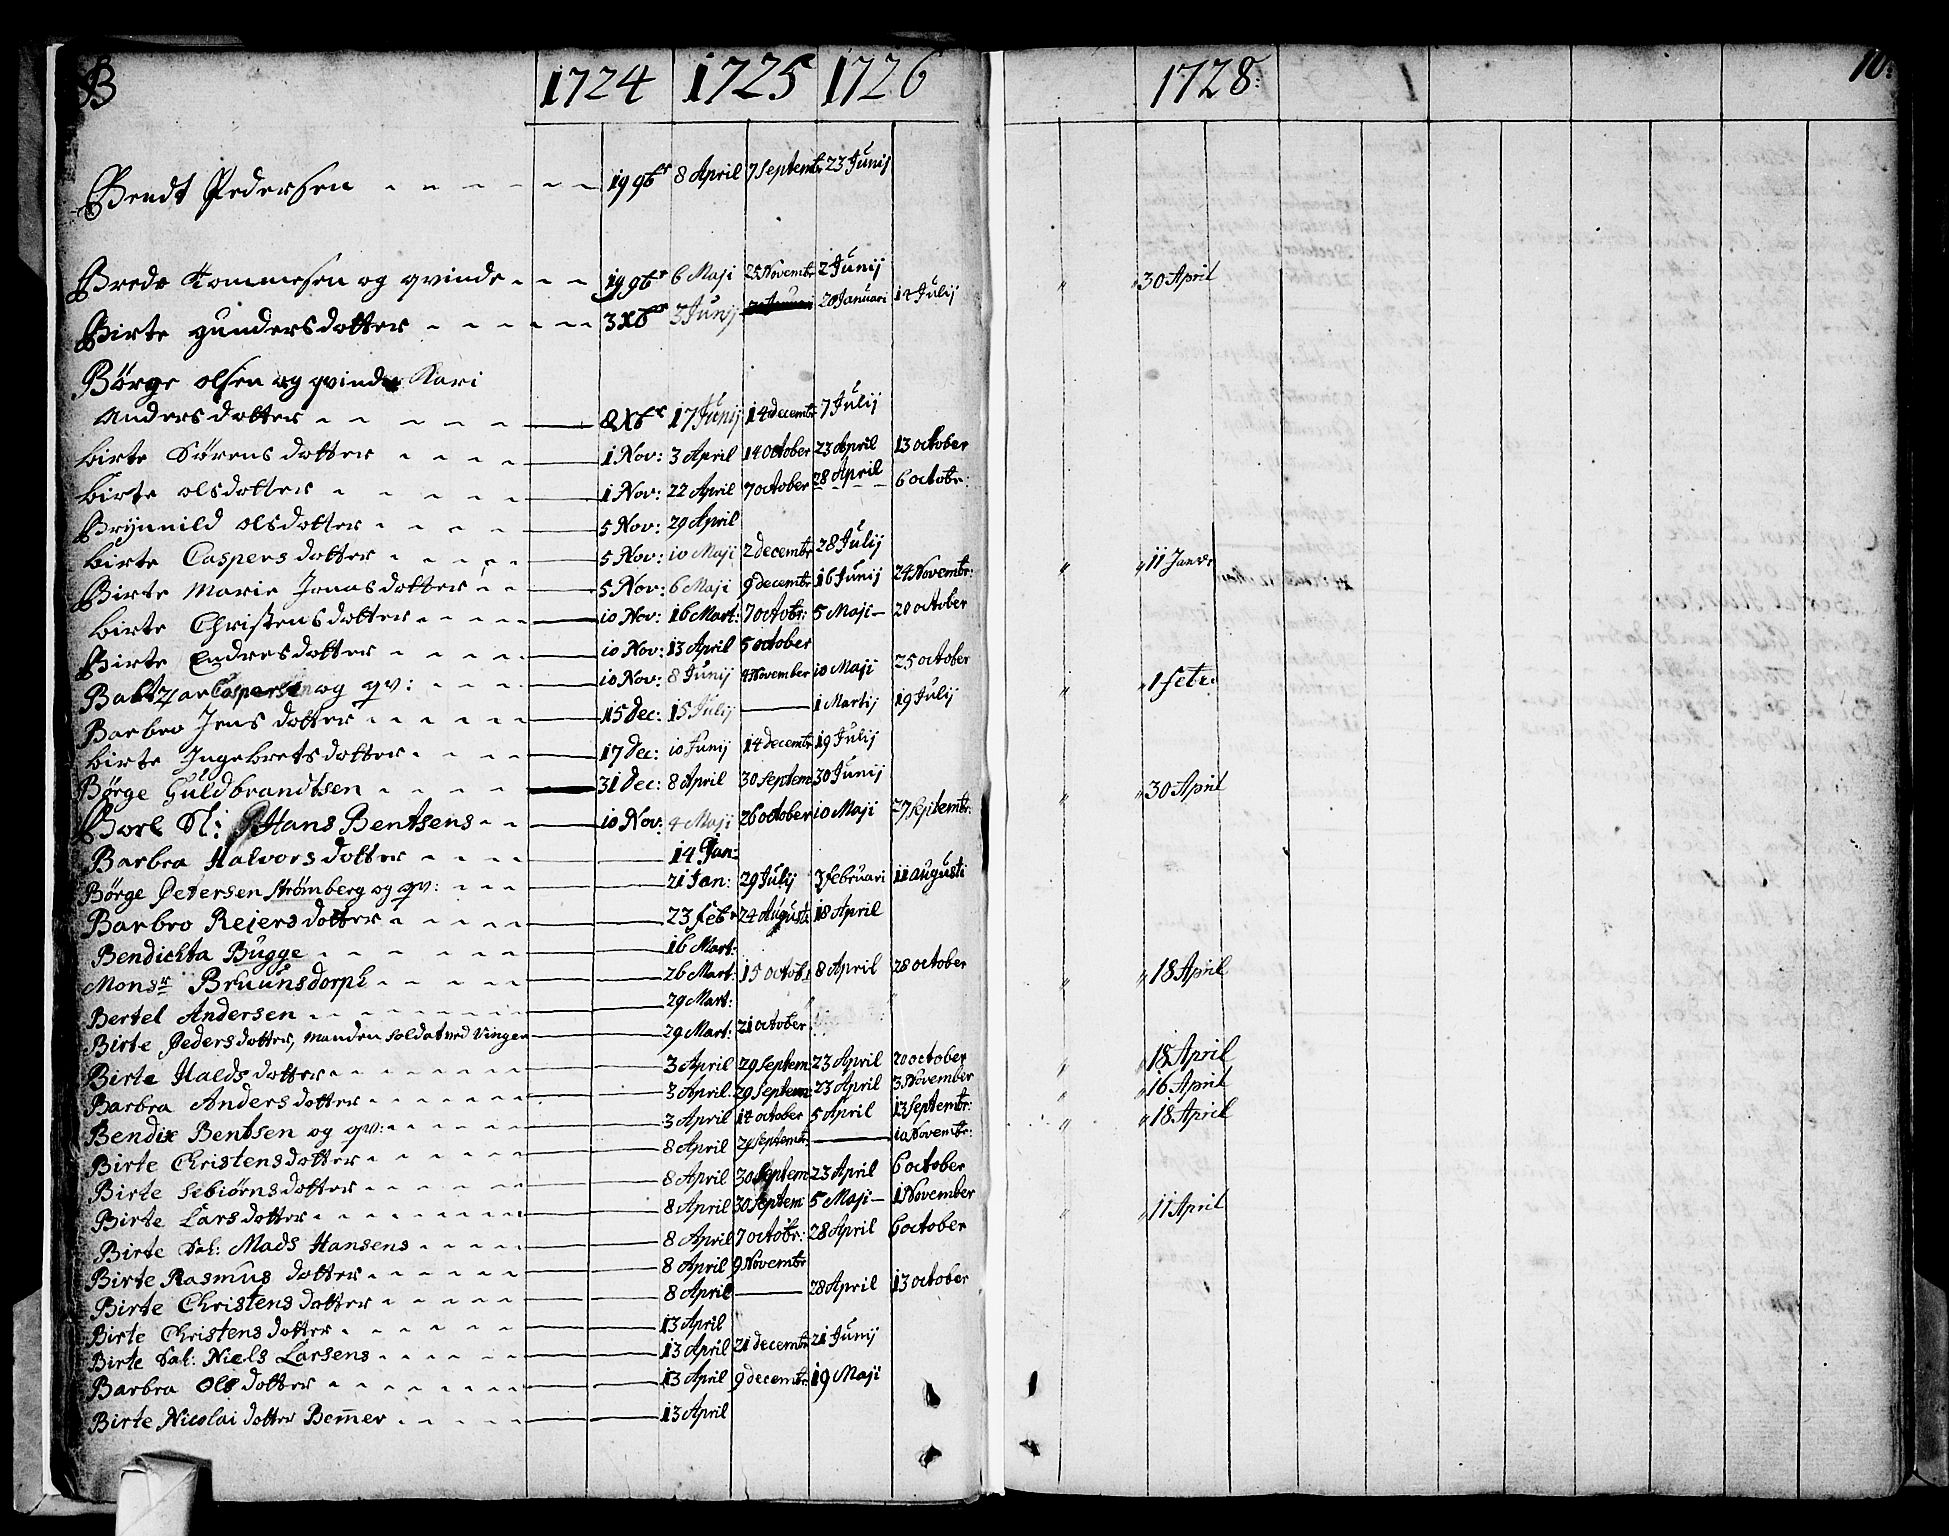 B 1724 1725 1726 1728. 10.
Bendt Pedersen 19 9br 8 April 7 Septembr 23 Junij
Brede Tommesen og qvinde 19 9br 6 Maji 25 Novembr 2 Junij " " 30 April
Birte gundersdotter 3 Xbr 3 Junij 20 Januari 12 Julij
Börge olsen og qvinde Kari
Andersdotter 8 Xbr 17 Junij 14 decembr 7 Julij
birte Sörensdotter 1 Nov: 3 April 14 october 23 April 13 october
birte olsdotter 1 Nov: 22 April 7 october 28 April 6 octobr:
Brÿnnild olsdotter 5 Nov: 29 April
birte Caspersdotter 5 Nov: 10 Maji 2 decembr 28 Julij " " 11 Janr
Birte Marie Jonasdotter 5 Nov: 6 Maji 9 decembr 16 Junij 24 Novembr:
birte Christensdotter 10 Nov: 16 Mart: 7 octobr: 5 Maji 20 october
Birte Endresdotter 10 Nov: 13 April 5 october
Baltzar Caspersen og qv: 10 Nov: 8 Junij 4 November 10 Maji 25 october " " 1 febr.
Barbro Jens dotter 15 Dec: 15 Julij — 1 Martij 19 Julij
birte Ingebretsdotter 17 Dec: 10 Junij 14 decembr 19 Julij
Börge Guldbrandtsen 31 Dec: 8 April 30 Septem 30 Junij " " 30 April
Borl Sl: Hans Bentsens 10 Nov: 4 Maji 26 october 10 Maji 27 Septembr:
Barbra Halvorsdotter 14 Jan:
Börge Petersen Strömberg og qv: 21 Jan: 29 Julij 3 februari 11 augusti
Barbro Rejersdotter 23 febr 24 Augusti 18 April
Bendichta Bugge 16 Mart:
Monsr Bruunsdorph 26 Mart: 15 octobr 8 April 28 october " " 18 April
Bertel Andersen 29 Mart:
Birte Pedersdotter, Manden Soldat ved Vingen 29 Mart: 21 october
Birte Haldsdotter 3 April 29 Septem 23 April 20 october " " 18 April
Barbra Andersdotter 3 April 29 Septem 23 April 3 November " " 16 April
Bendix Bentsen og qv: 3 April 14 october 5 April 13 Septembr: " " 18 April
Birte Christensdotter 8 April 29 Septembr — 10 Novembr:
Birte Sebiörnsdotter 8 April 30 Septem 23 April 6 october
Birte Larsdotter 8 April 30 Septem: 5 Maji 1 November " " 11 April
Birte Sal: Mads Hansens 8 April 7 octobr: 28 April 6 october
Birte Rasmus dotter 8 April 9 Novembr
Birte Christensdotter 8 April — 28 April 13 october
Birte Christensdotter 13 April
Birte Sal: Niels Larsens 13 April 21 decembr 21 Junij
Barbra Olsdotter 13 April 9 decembr 19 Maji
Birte Nicolai dotter Bem̄er 13 April